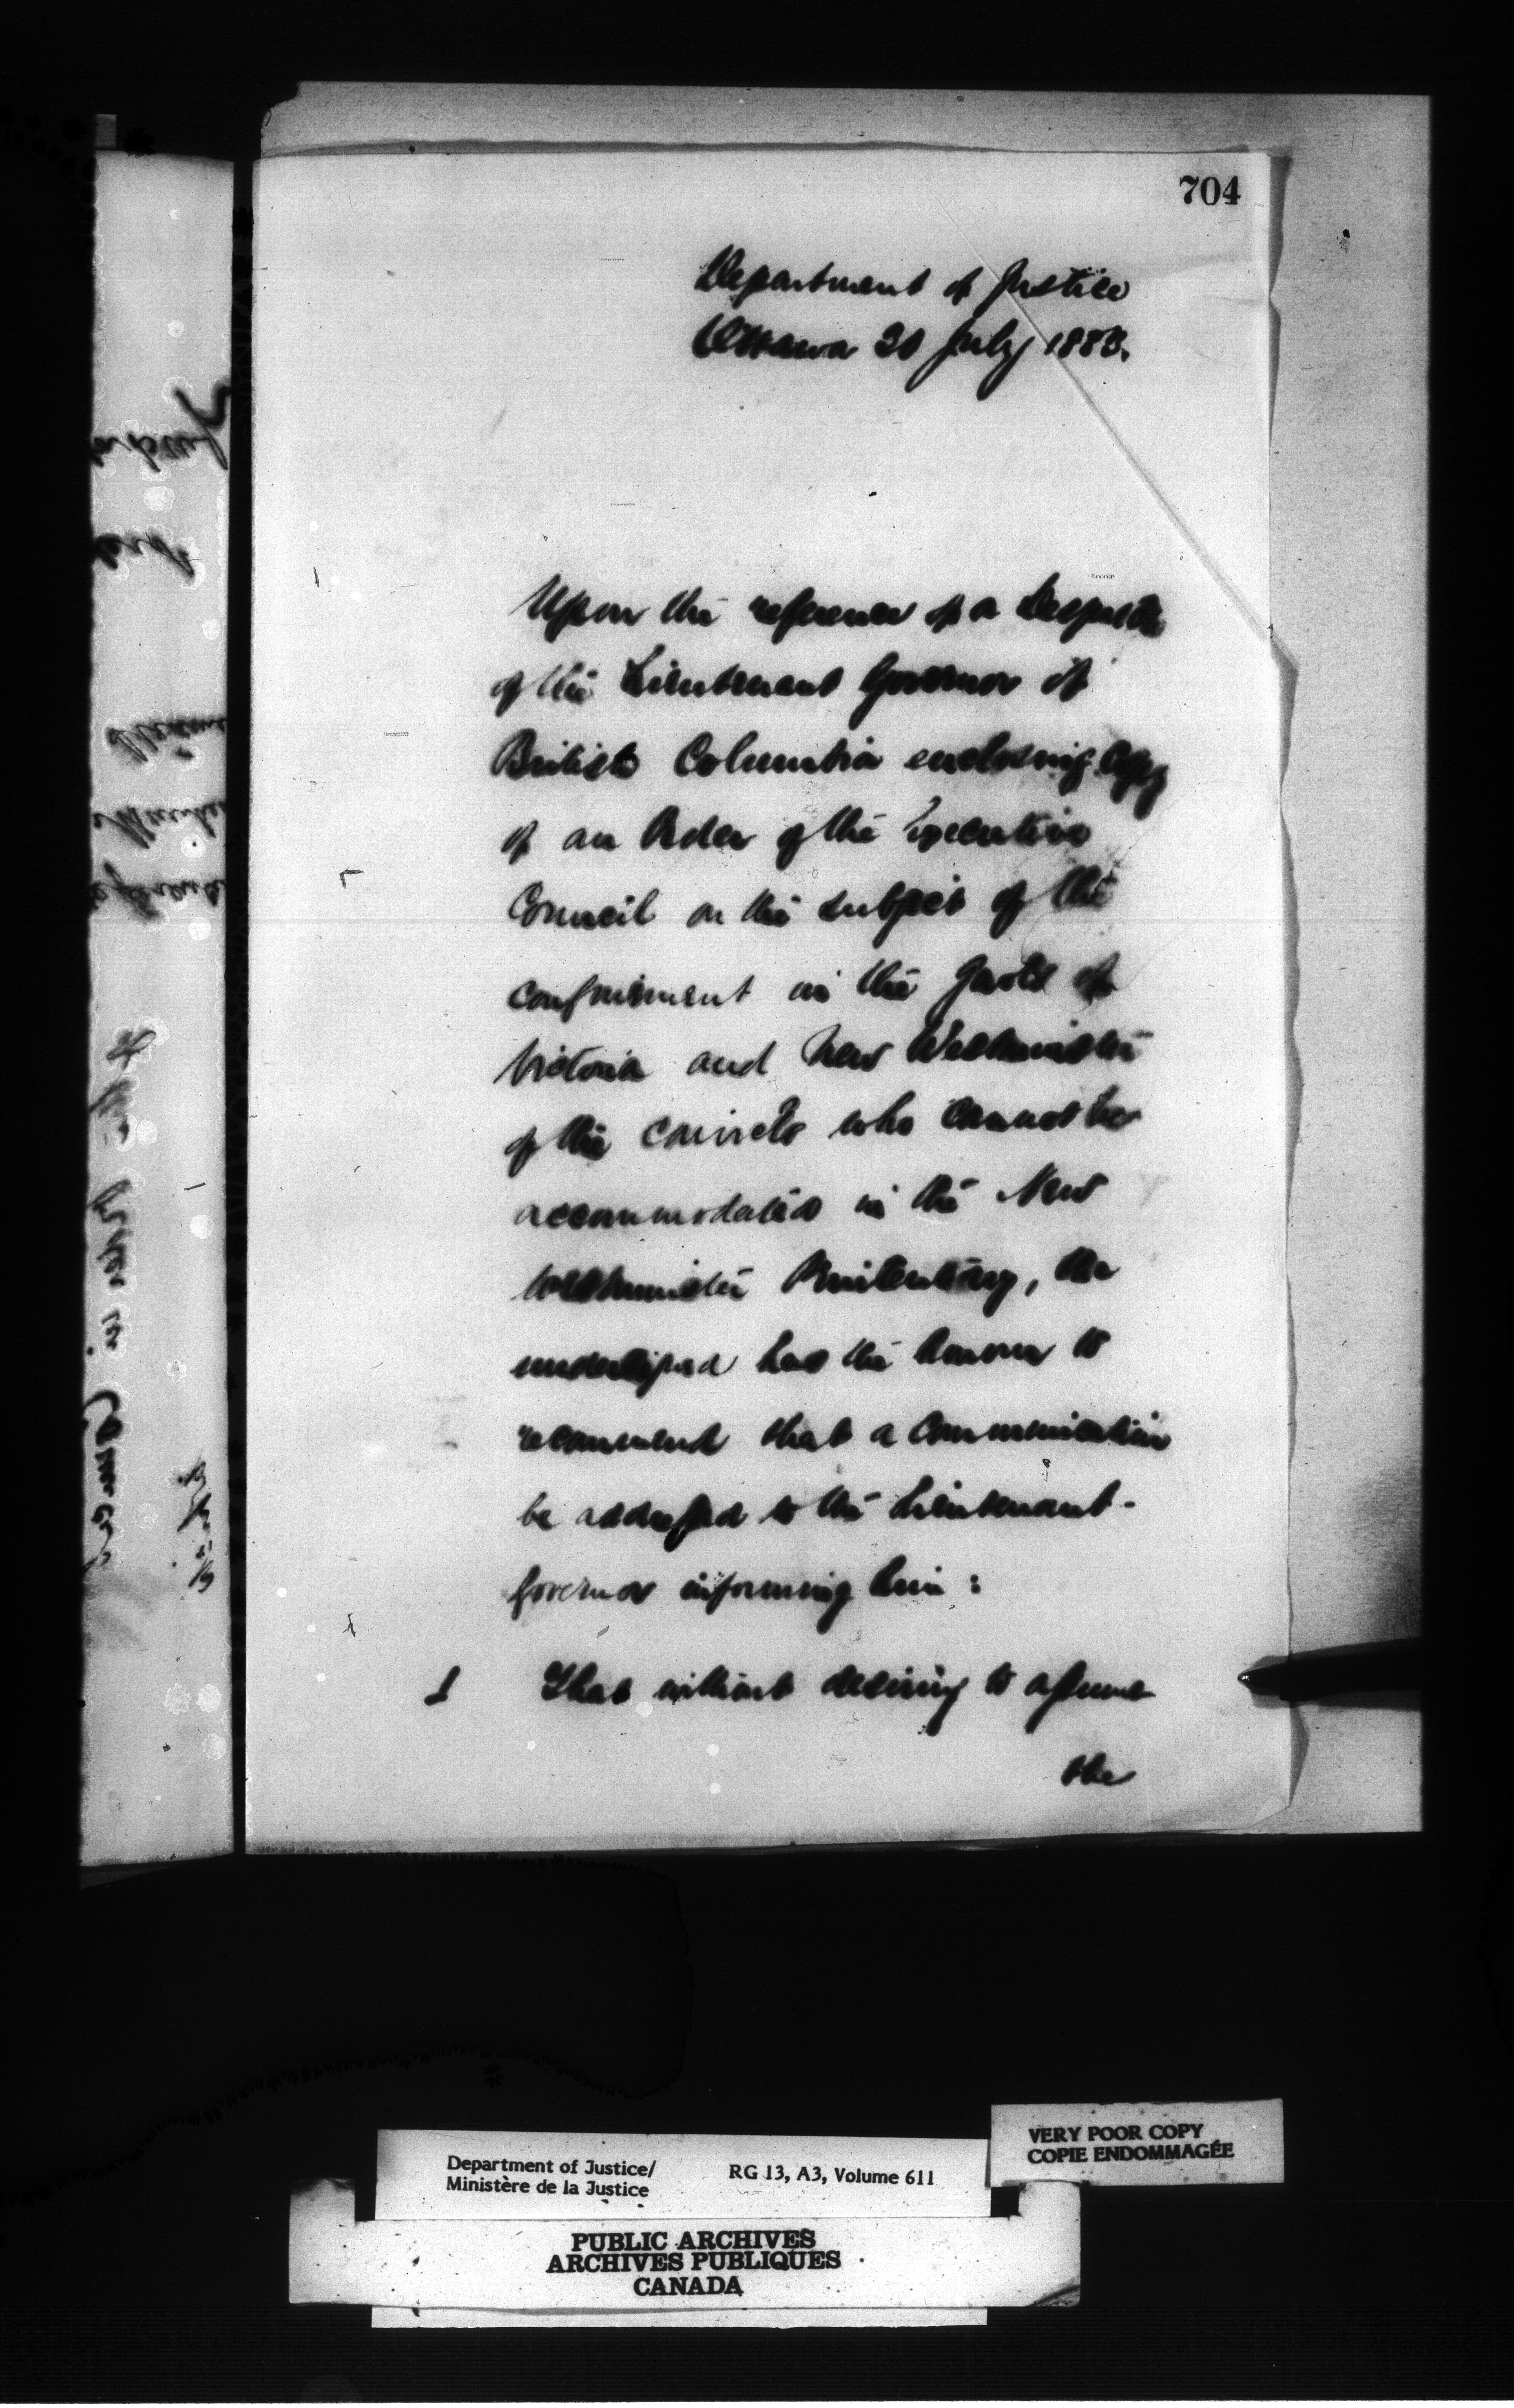 704
Department of Justice
Ottawa 20 July 1883.
Upon the reference of a Despatch
of the Lieutenant Governor of
British Columbia enclosing Copy
of an Order of the Executive
Council on the subject of the
confinement in the Gaols of
Victoria and New Westminster
of the convicts who cannot be
accommodated in the New
Westminster Penitentiary, the
undersigned has the honour to
recommend that a Communication
be addressed to the Lieutenant-
Governor informing him:
1 That without desiring to assume
the
VERY POOR COPY
COPIE ENDOMMAGÉE
Department of Justice/
Ministère de la Justice
RG 13, A3, Volume 611
PUBLIC ARCHIVES
ARCHIVES PUBLIQUES
CANADA